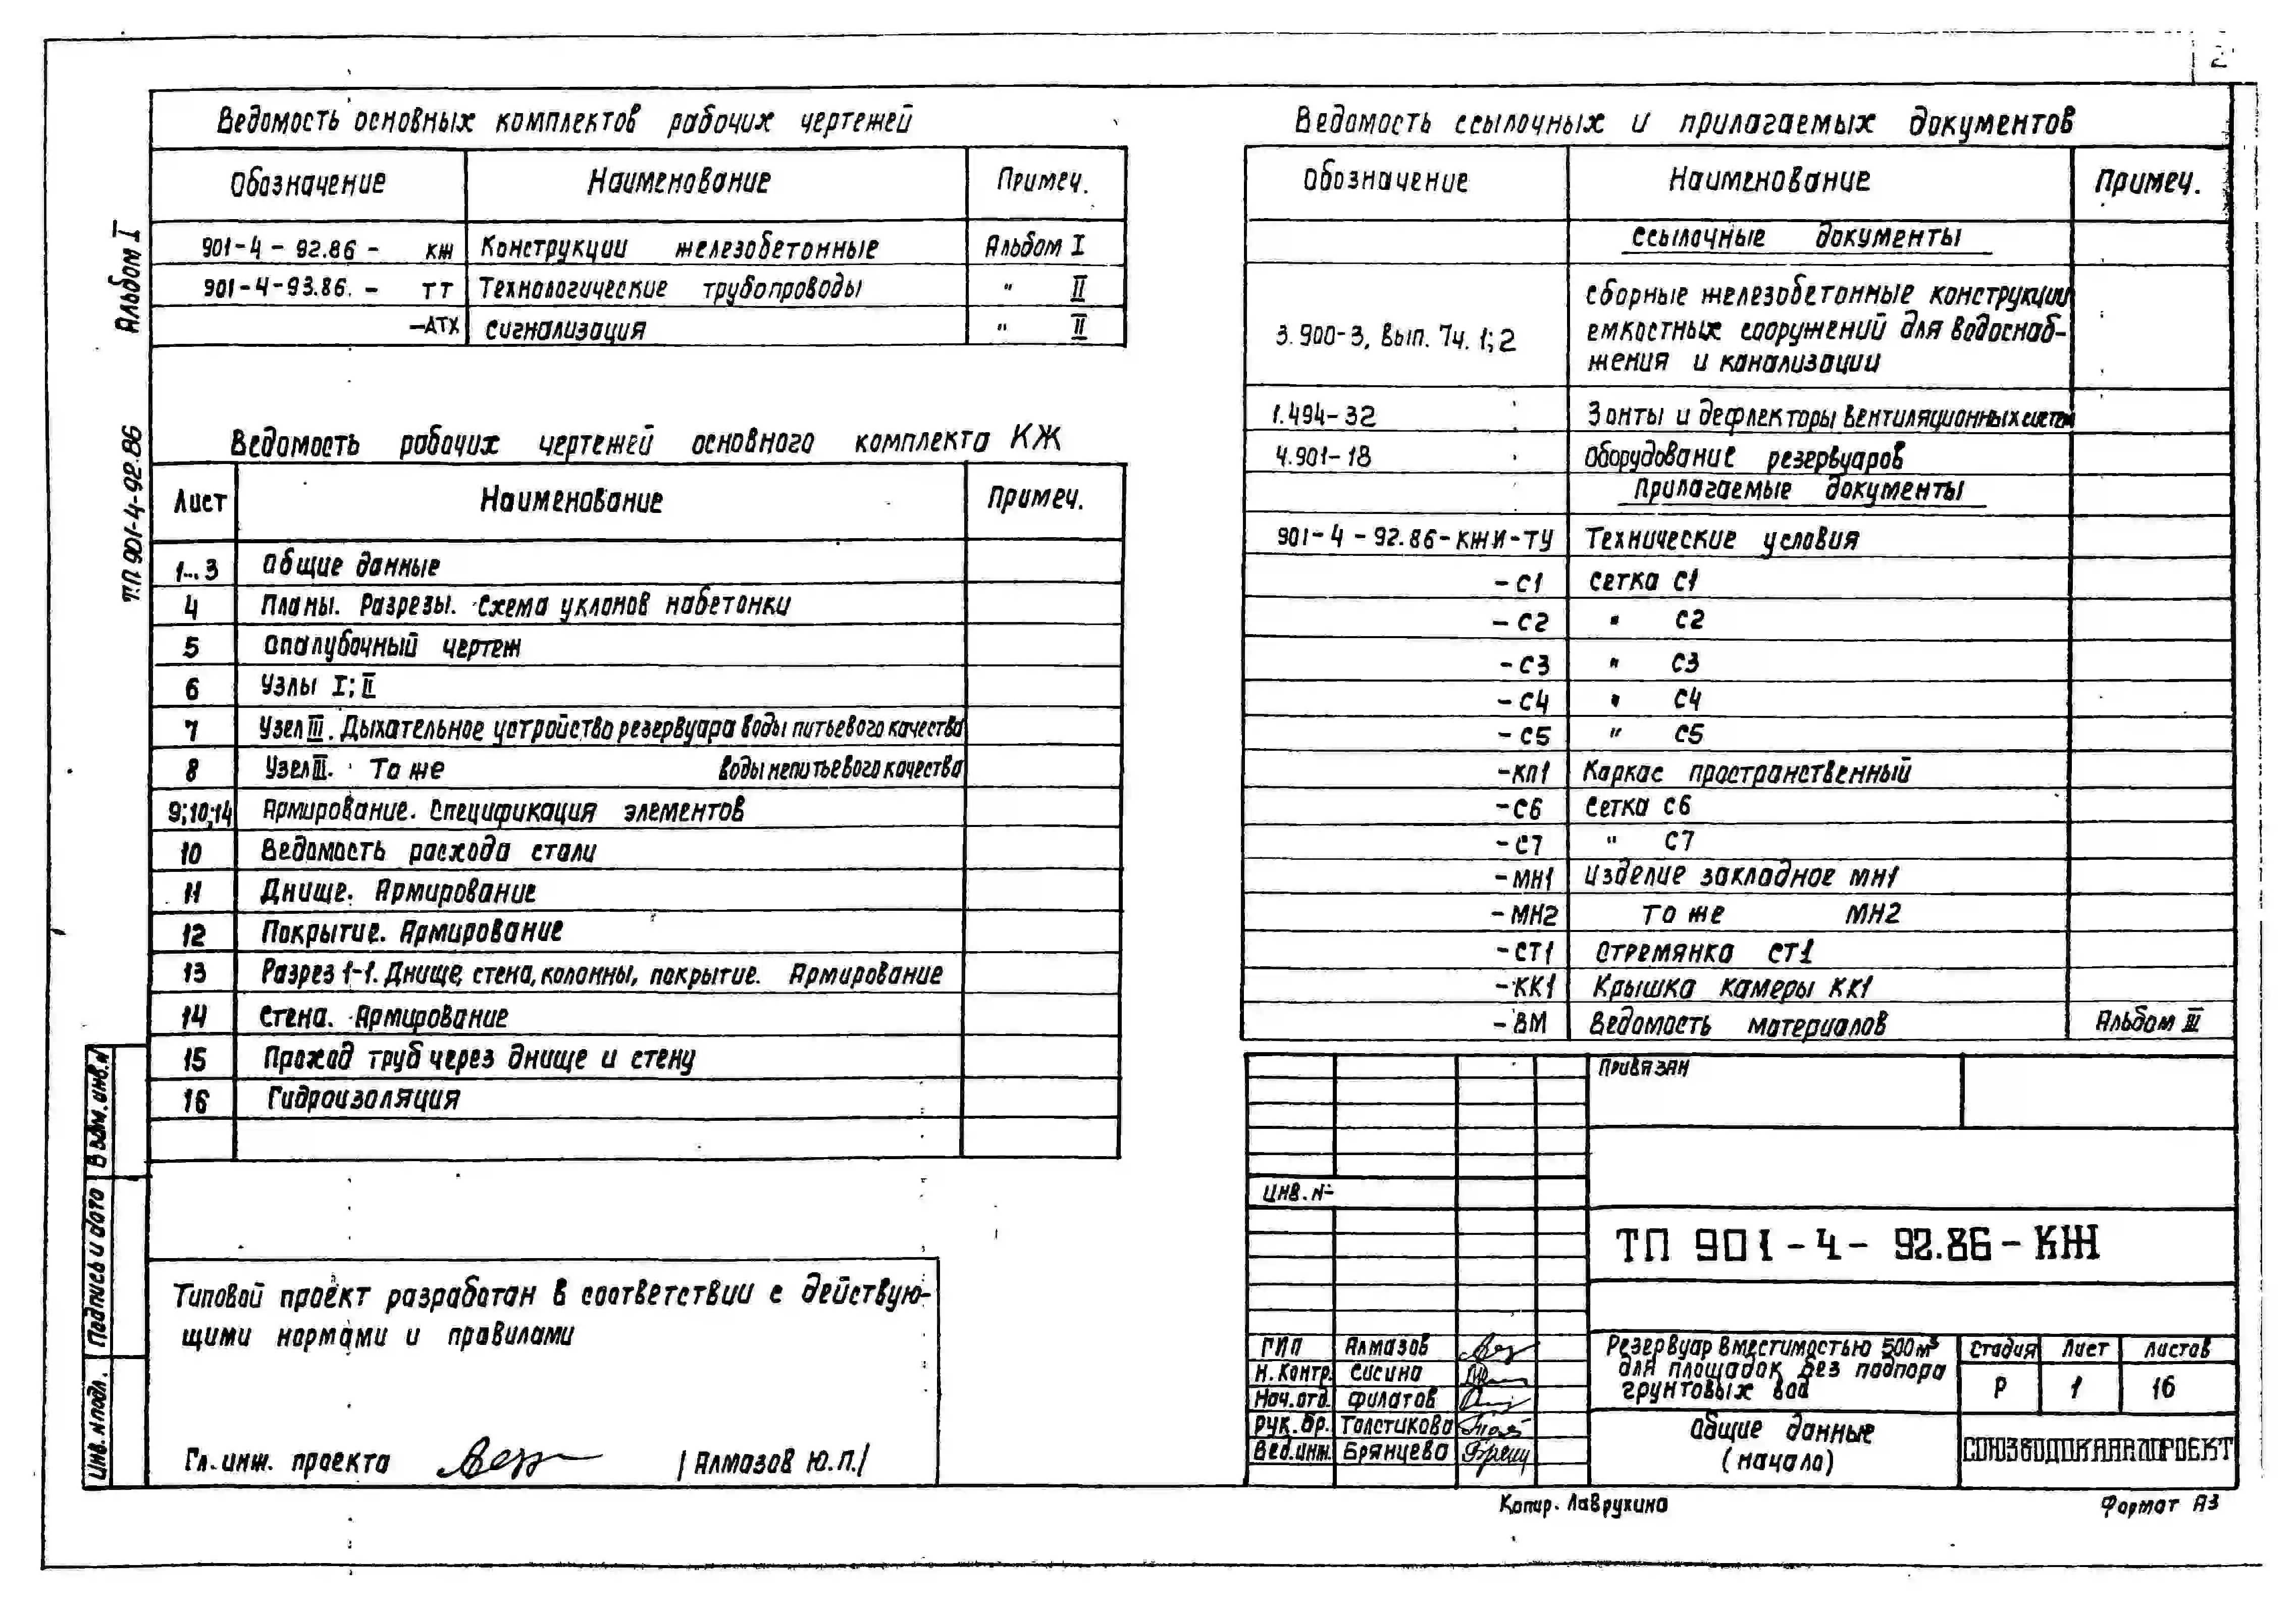 2
Альбом I
Т.П 901-4-92.86
Ведомость основных комплектов рабочих чертежей
Обозначение Наименование Примеч.
901-4-92.86- КЖ Конструкции железобетонные Альбом I
901-4-93.86.- ТТ Технологические трубопроводы " II
-АТХ Сигнализация " II
Ведомость рабочих чертежей основного комплекта КЖ
Лист Наименование Примеч.
1...3 Общие данные
4 Планы. Разрезы. Схема уклонов набетонки
5 Опалубочный чертеж
6 Узлы I; II
7 Узел III. Дыхательное устройство резервуара воды питьевого качества
8 Узел III. То же воды непитьевого качества
9;10;14 Армирование. Спецификация элементов
10 Ведомость расхода стали
11 Днище. Армирование
12 Покрытие. Армирование
13 Разрез 1-1. Днище, стена, колонны, покрытие. Армирование
14 Стена. Армирование
15 Проход труб через днище и стену
16 Гидроизоляция
Типовой проект разработан в соответствии с действую-
щими нормами и правилами
Гл. инж. проекта /Алмазов Ю.П./
Взам. инв. №
Подпись и дата
Инв. № подл.
Ведомость ссылочных и прилагаемых документов
Обозначение Наименование Примеч.
Ссылочные документы
3.900-3, вып. 7ч. 1; 2 Сборные железобетонные конструкции
емкостных сооружений для водоснаб-
жения и канализации
1.494-32 Зонты и дефлекторы вентиляционных систем
4.901-18 Оборудование резервуаров
Прилагаемые документы
901-4-92.86-КЖИ-ТУ Технические условия
-С1 Сетка С1
-С2 " С2
-С3 " С3
-С4 " С4
-С5 " С5
-КП1 Каркас пространственный
-С6 Сетка С6
-С7 " С7
-МН1 Изделие закладное МН1
-МН2 То же МН2
-СТ1 Стремянка СТ1
-КК1 Крышка камеры КК1
-ВМ Ведомость материалов Альбом III
Привязан
Инв. №
ТП 901-4-92.86-КЖ
ГИП Алмазов
Н. Контр. Сисина
Нач. отд. Филатов
Рук. бр. Толстикова
Вед. инж. Брянцева
Резервуар вместимостью 500м³
для площадок без подпора
грунтовых вод
Стадия Лист Листов
Р 1 16
Общие данные
(начало)
СОЮЗВОДОКАНАЛПРОЕКТ
Копир. Лаврухина
Формат А3